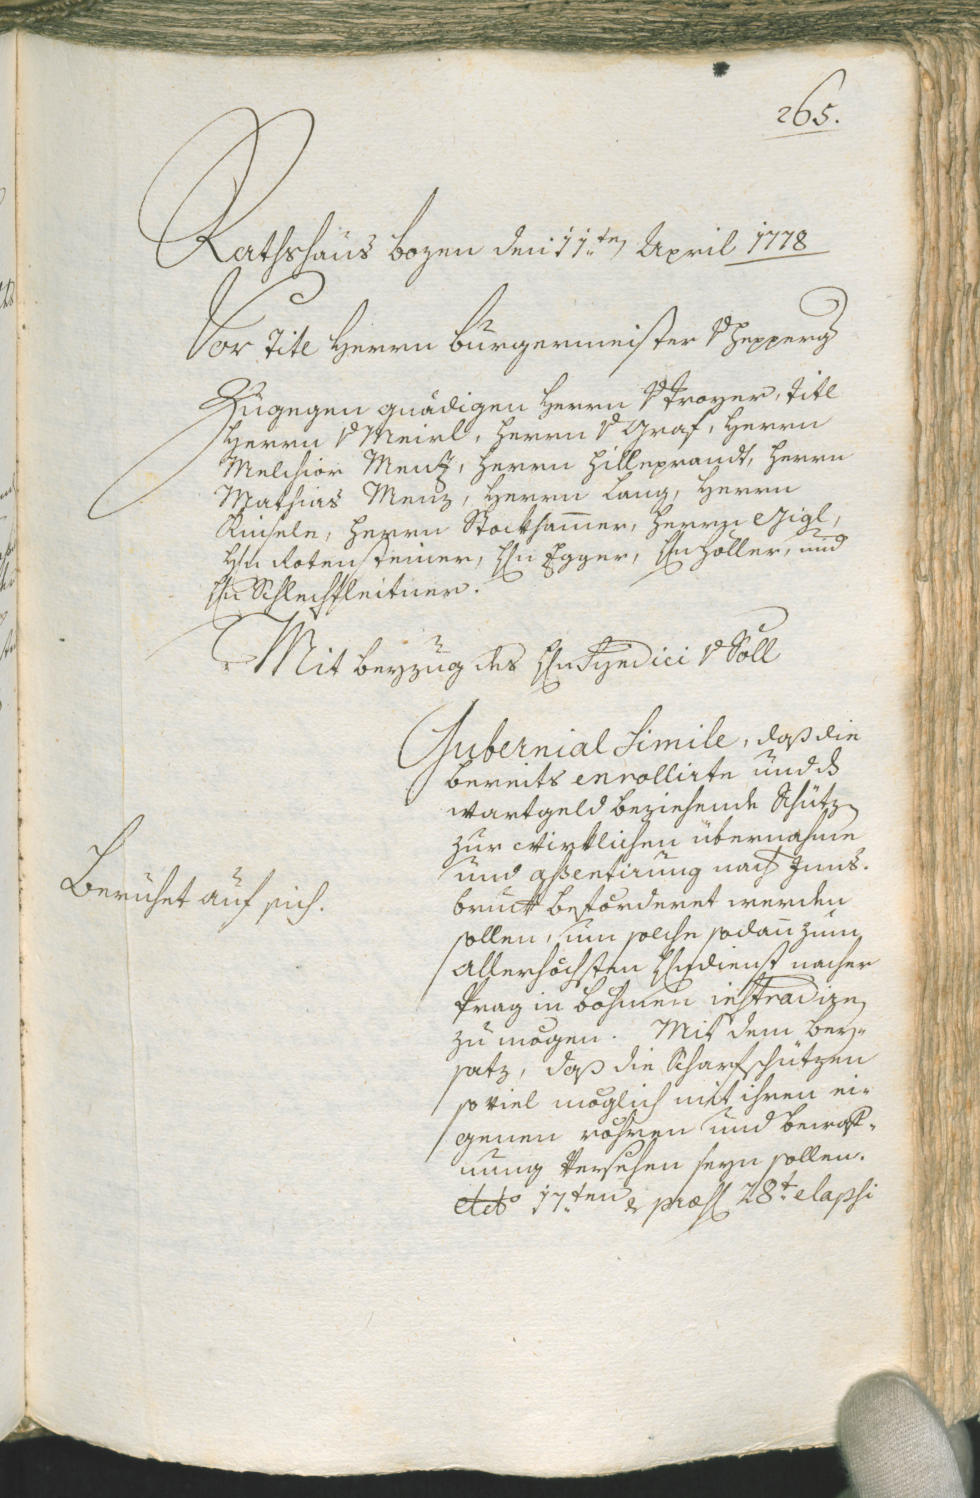 265.
Rathshaus Bozen den 11ten April 1778
Vor Titl Herrn Burgermeister v Hepperg
Zugegen gnädigen Herrn v Troyer, Titl
Herrn v Meirl, Herrn v Graf, Herrn
Melchior Menz, Herrn Hilleprandt, Herrn
Mathias Menz, Herrn Lang, Herrn
Kinsele, Herrn Stockhamer, Herrn Gigl,
Hn Rotensteiner, Hn Egger, Hn Holler, und
Hn Schlechtleitner.
Mit beyzug des Hn Syndici v Söll
Gubernial Simile, daß die
bereits enrollirte und d
wartgeld beziehende Schützen
zur wirklichen übernahme
und assentirung nach Inns-
Beruhet auf sich.
bruck beförderet werden
sollen, um solche sodan zum
allerhöchsten Hndienst nacher
Prag in Böhmen instradiren
zu mögen. Mit dem bey-
satz, daß die Scharfschützen
so viel möglich mit ihren ei-
genen röhren und bewaff-
nung versehen seyn sollen.
ddto 17ten & præs 28t elapsi